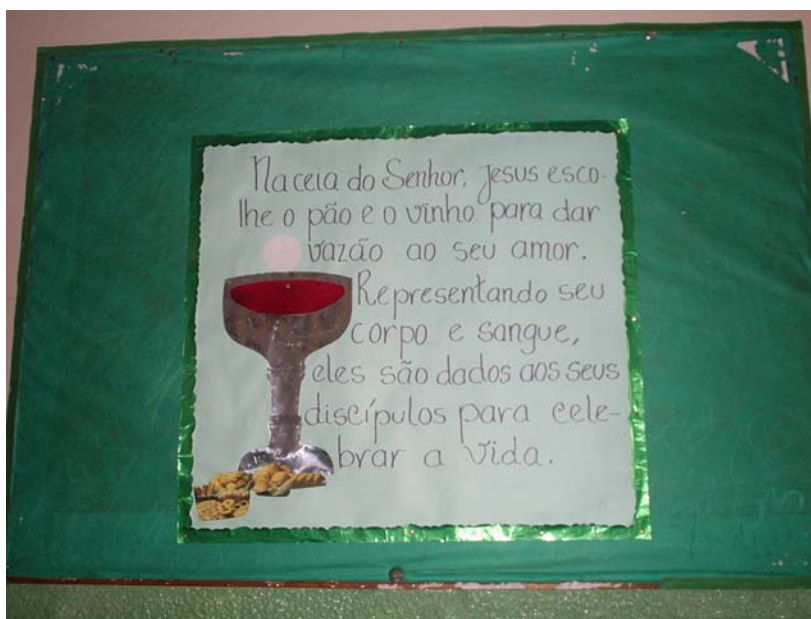 Na ceia do Senhor, Jesus esco-
lhe o pão e o vinho para dar
vazão ao seu amor.
Representando seu
corpo e sangue,
eles são dados aos seus
discípulos para cele-
brar a vida.